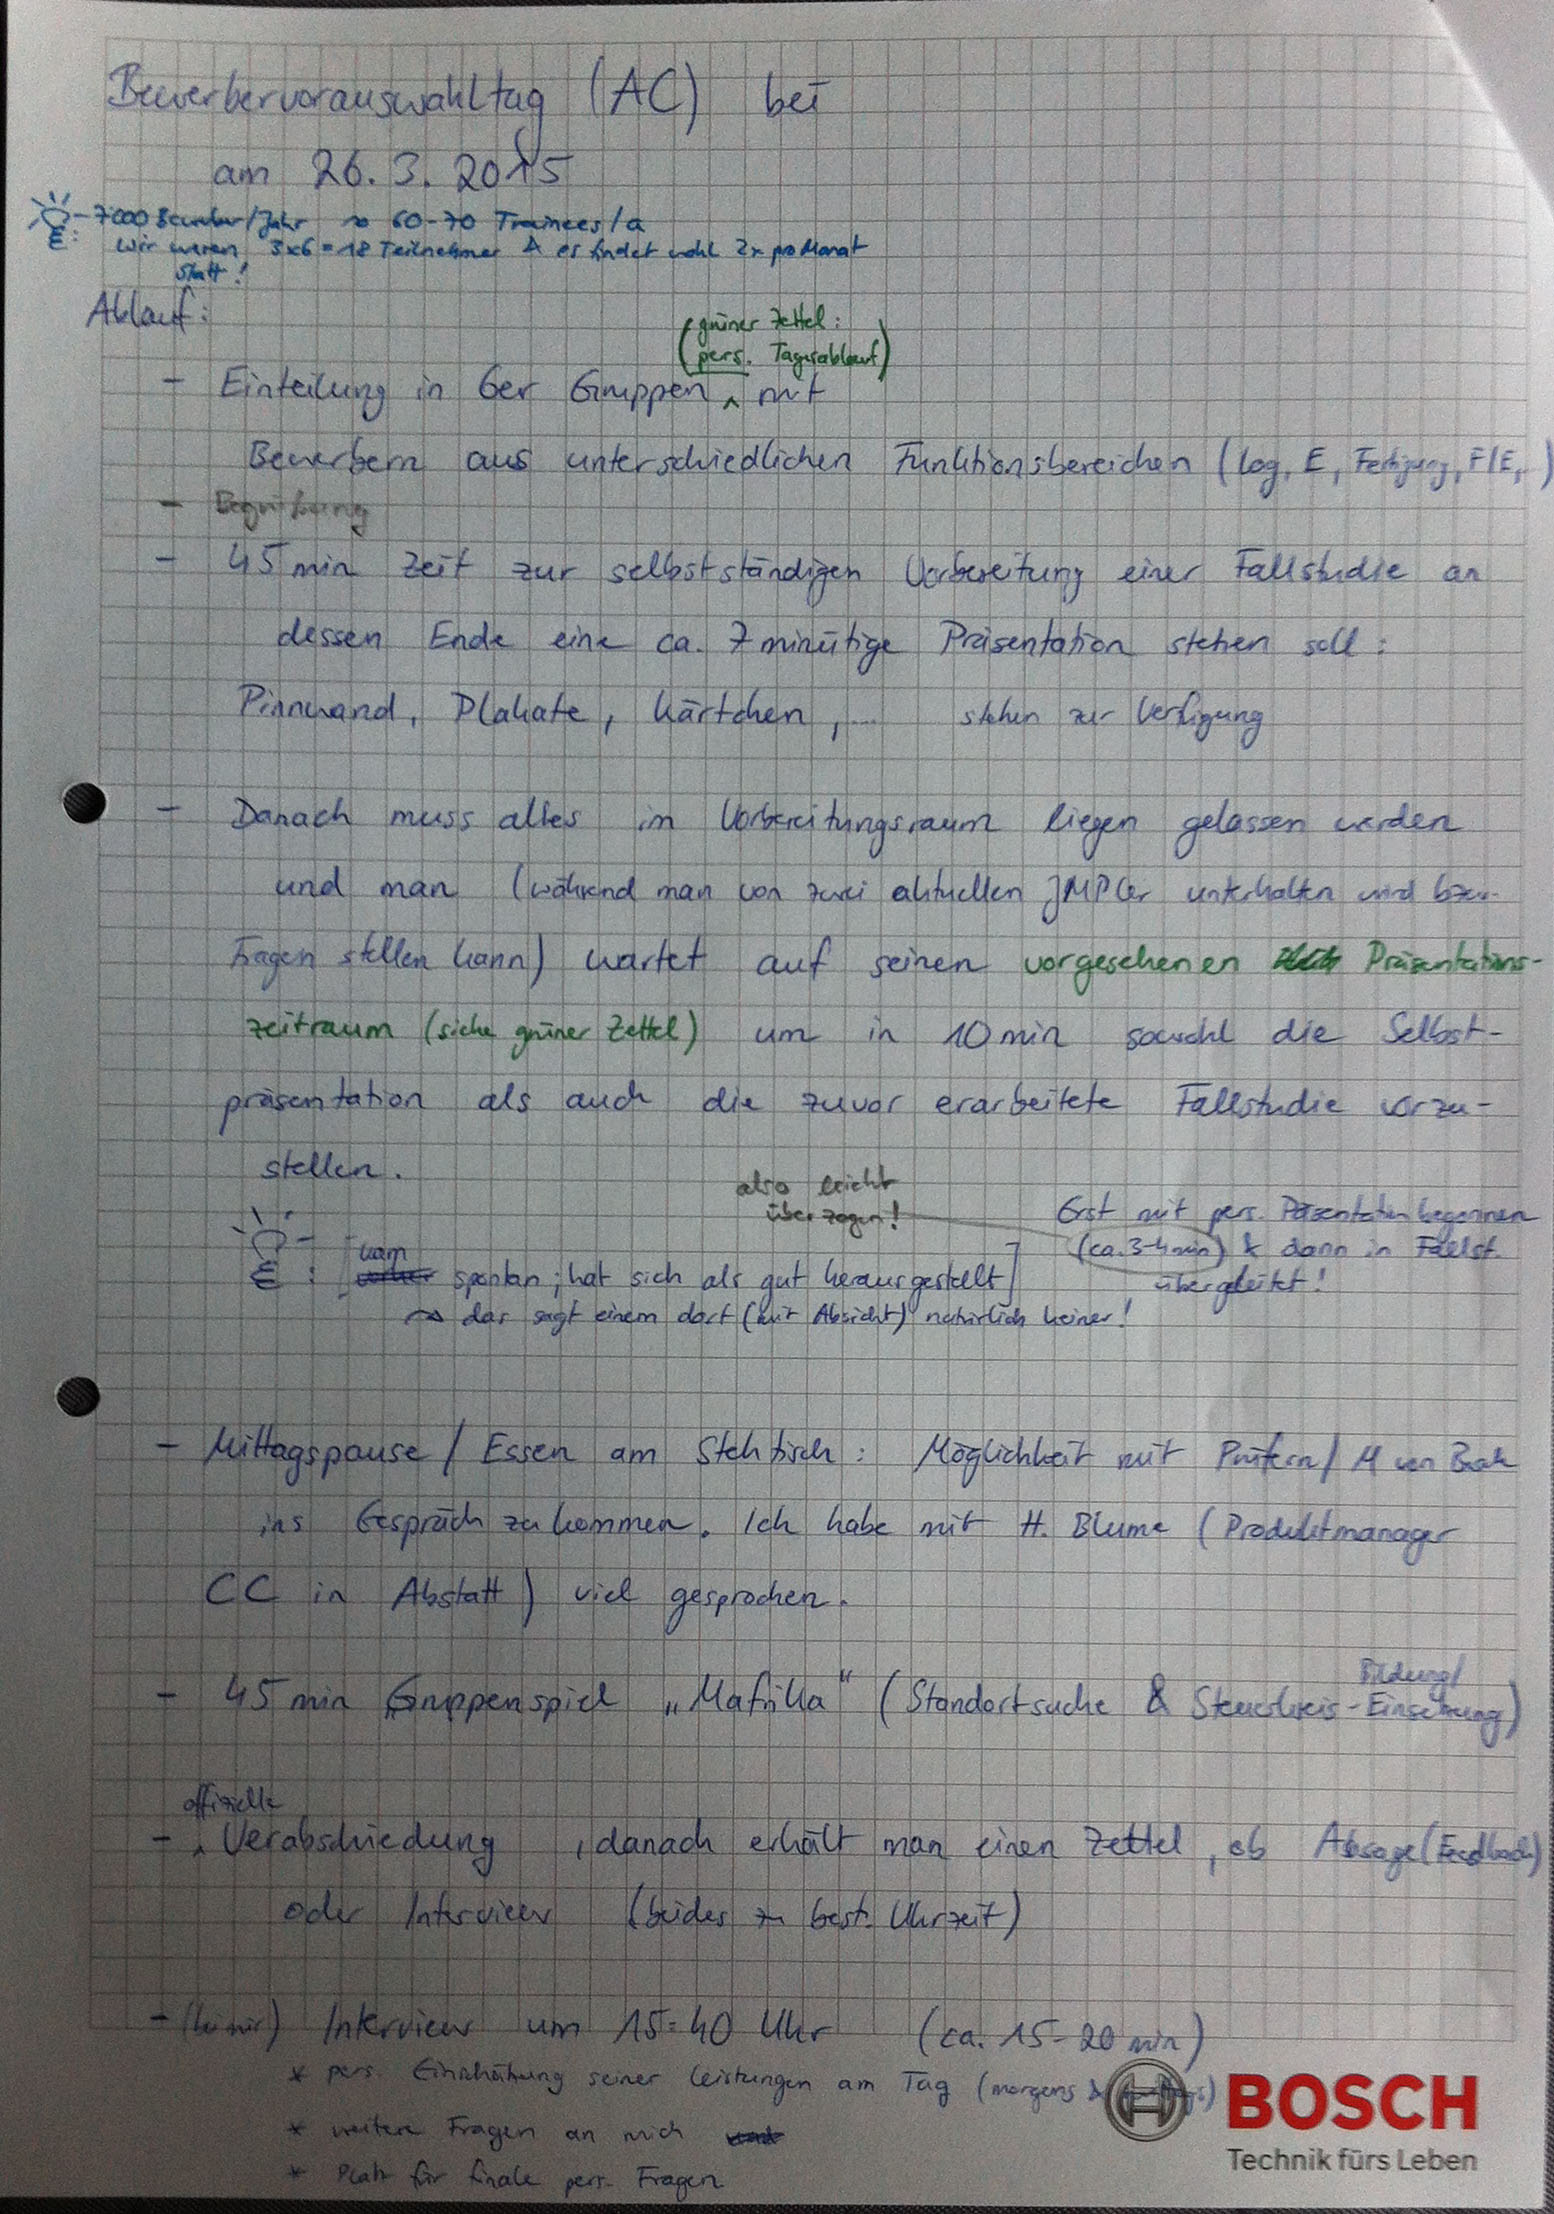 Bewerbervorauswahltag (AC) bei
am 26.3.2015
- 7000 Bewerber/Jahr ~> 60-70 Trainees/a
Wir waren 3x6 = 18 Teilnehmer & es findet wohl 2x pro Monat
statt!
Ablauf:
(grüner Zettel:
pers. Tagesablauf)
- Einteilung in 6er Gruppen ^ mit
Bewerbern aus unterschiedlichen Funktionsbereichen (Log, E, Fertigung, F/E, )
- Begrüßung
- 45 min Zeit zur selbstständigen Vorbereitung einer Fallstudie an
dessen Ende eine ca. 7 minütige Präsentation stehen soll:
Pinnwand, Plakate, Kärtchen, ... stehen zur Verfügung
- Danach muss alles im Vorbereitungsraum liegen gelassen werden
und man (während man von zwei aktuellen JMPler unterhalten wird bzw.
Fragen stellen kann) wartet auf seinen vorgesehenen Präsentations-
zeitraum (siehe grüner Zettel) um in 10 min sowohl die Selbst-
präsentation als auch die zuvor erarbeitete Fallstudie vorzu-
stellen.
also leicht
überzogen!
Erst mit pers. Präsentation begonnen
(ca. 3-4 min) & dann in Fallst.
übergeleitet!
: [kam spontan; hat sich als gut herausgestellt]
~> das sagt einem dort (mit Absicht) natürlich keiner!
- Mittagspause / Essen am Stehtisch: Möglichkeit mit Prüfern / M von Bosch
ins Gespräch zu kommen. Ich habe mit H. Blume (Produktmanager
CC in Abstatt) viel gesprochen.
- 45 min Gruppenspiel „Mafrika“ (Standortsuche & Steuerkreis-Bildung/Einsetzung)
- ^ offizielle Verabschiedung, danach erhält man einen Zettel, ob Absage (Feedback)
oder Interview (beides zu best. Uhrzeit)
- (bei mir) Interview um 15:40 Uhr (ca. 15-20 min)
* pers. Einschätzung seiner Leistungen am Tag (morgens &
* weitere Fragen an mich
* Platz für finale pers. Fragen
BOSCH
Technik fürs Leben